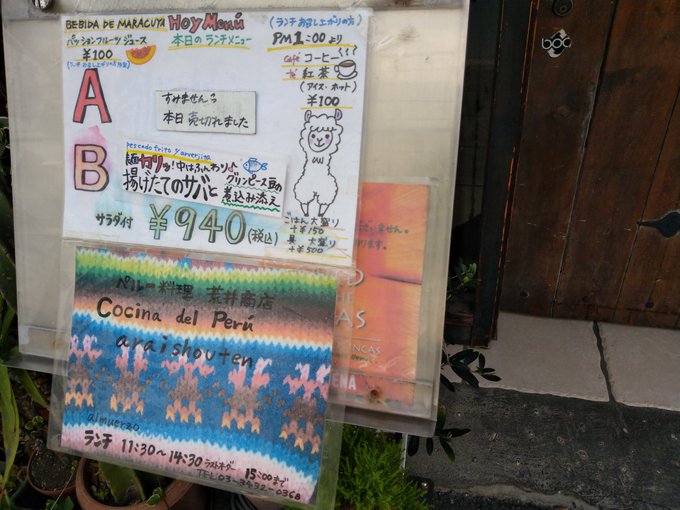 BEBIDA DE MARACUYA
パッションフルーツジュース
¥100
Hoy Menú
本日のランチメニュー
(ランチお召し上がりの方)
PM1:00より
Café コーヒー
té 紅茶
(アイス・ホット)
¥100
A
すみません
本日売切れました
B
pescado frito y arverjita
カリッ!中はふんわり♪
揚げたてのサバと
グリンピース豆の
煮込み添え
サラダ付 ¥940(税込)
ごはん大盛り
+¥150
具 大盛り
+¥500
ペルー料理 荒井商店
Cocina del Perú
araishouten
almuerzo
ランチ 11:30~14:30 ラストオーダー
15:00まで
TEL03-3432-0368
boc